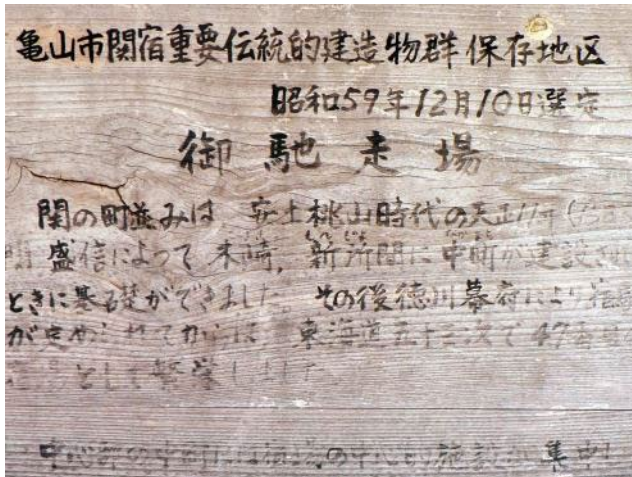 亀山市関宿重要伝統的建造物群保存地区
昭和59年12月10日選定
御馳走場
関の町並みは 安土桃山時代の天正11年
盛信によって 木崎, 新所間に中町が建設され
ときに基礎ができました その後徳川幕府により宿駅
が定められてからは, 東海道五十三次で47番目
として繁栄しました
の中心的施設が集中し